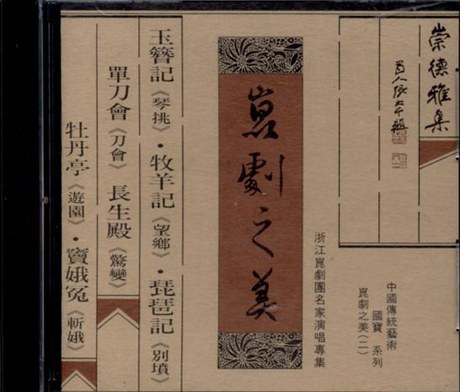 崇德雅集
中國傳統藝術
國寶 系列
崑劇之美(二)
浙江崑劇團名家演唱專集
崑劇之美
玉簪記《琴挑》・牧羊記《望鄉》・琵琶記《別墳》
單刀會《刀會》長生殿《驚變》
牡丹亭《遊園》・竇娥冤《斬娥》